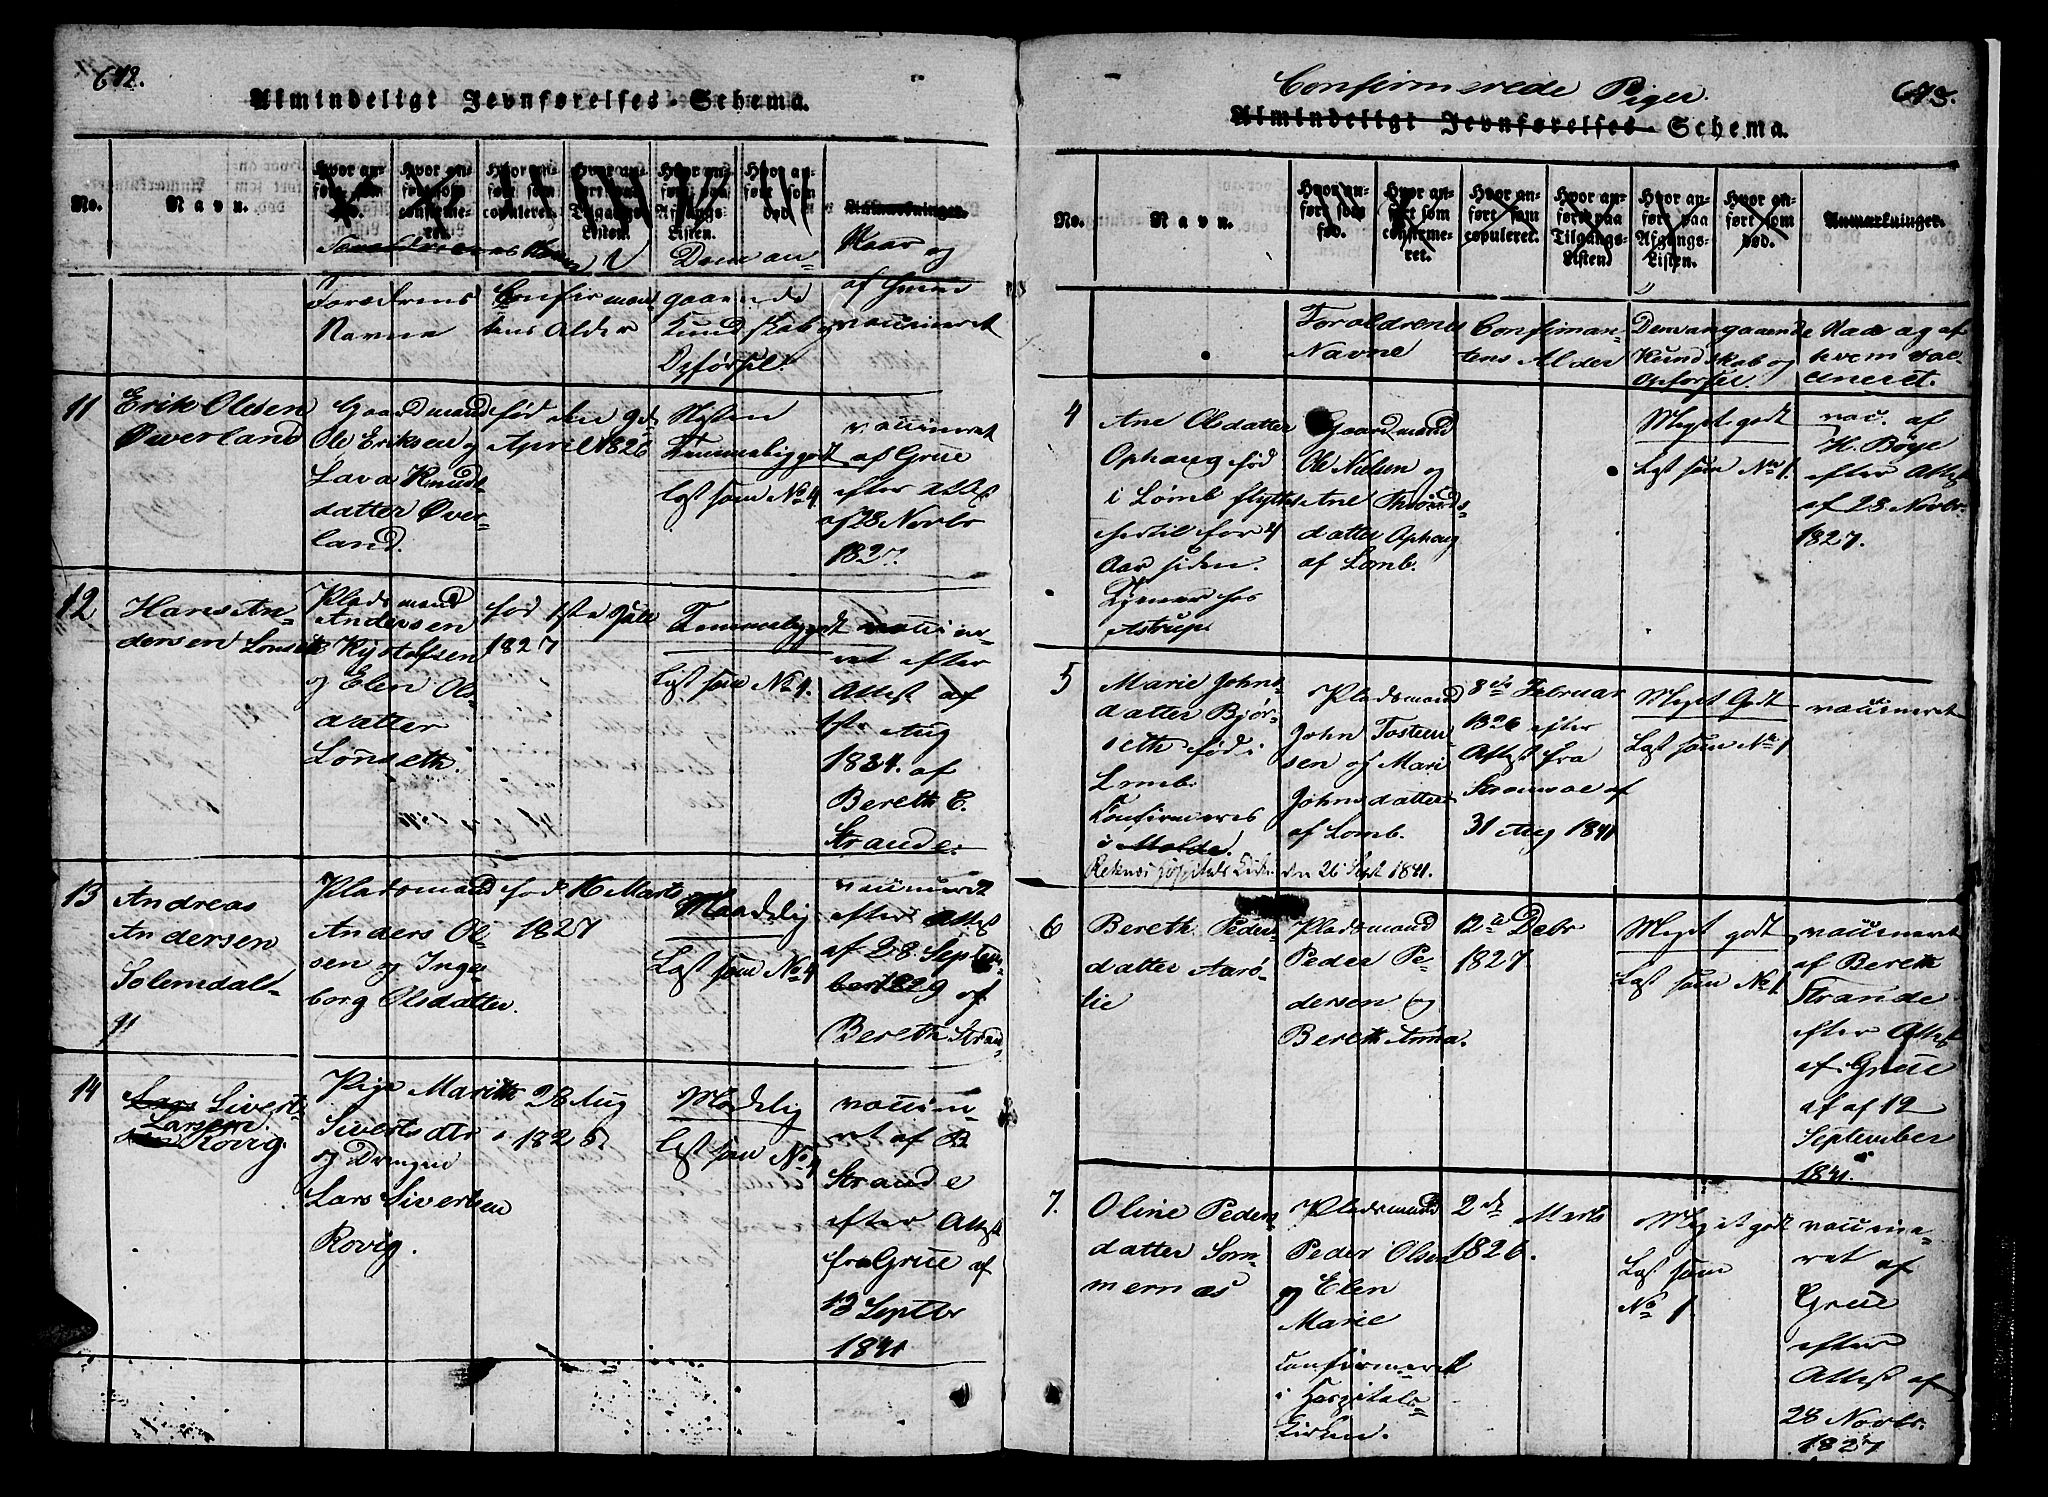 642.
Almindeligt Jevnførelses-Schema.
No.
Navn.
Hvor anført som
Hvor anført som confirmeret.
Hvor anført som copuleret.
Hvor anført paa Tilgangs-Listen.
Hvor anført paa Afgangs-Listen.
Hvor anført som død.
Anmærkninger.
Forældrenes
Navne
Confirman
tens Alder
Dom an-
gaaende
Kundskab og
Opførsel.
Naar og
af hvem
vaccineret
11
Erik Olesen
Øverland
Gaardmand
Ole Eriksen og
Knuds-
datter Øver-
land.
fød den 9de
April 1826
Næsten
Temmelig godt
Læst som No 4
vaccineret
af Grüe
efter Attest
af 28 Novbr
1827.
12
Hans An-
dersen Lønseth
Pladsmand
Andersen
og Elen Ols-
datter
Lønseth.
fød 1ste
1827
Temmelig godt
Læst som No 4.
vaccine-
ret efter
Attest af
1ste Aug
1834. af
Bereth E.
Strande.
13
Andreas
Andersen
Solemdal-
Pladsmand
Anders Ol-
sen og Inge-
borg Olsdatter.
fød 16 Marts
1827
Maadelig
Læst som No 4
vaccineret
efter Attest
af 28 Septem-
ber 1829 af
Bereth Stran-
14
Lars Sivert
Larsen
Rovig.
Pige Marith
Sivertsdtr
og Drengen
Lars Sivertsen
Rovig.
28 Aug
1825
Mådelig
Læst som No 4
vaccine-
ret af B
Strande
efter Attest
fra Grüe af
13 Septbr
1841
Confirmerede Piger.
643.
Almindeligt Jevnførelses-Schema.
No.
Navn.
Hvor anført som fød.
Hvor anført som confirmeret.
Hvor anført som copuleret.
Hvor anført paa Tilgangs-Listen
Hvor anført paa Afgangs-Listen.
Hvor anført som død.
Anmærkninger.
Forældrenes
Navne
Confirman-
tens Alder
Dom angaaende
Kundskab og
Opførsel
Naar og af
hvem vac
cineret.
4
Ane Olsdatter
Ophaug fød
i Lømb flyttet
hertil for 4
Aar siden.
Tjener hos
Astrup.
Gaardmand
Ole Nielsen og
Ane
datter Ophaug
af Lomb.
Meget godt
Læst som No 1.
vac. af
H. Bøye
efter Attest
af 28 Novbr.
1827.
5
Marie Johns-
datter Bjør-
seth fød i
Lomb.
Confirmeres
i Molde.
Reknes Hospitals Kirke den 26 Sept 1841.
Pladsmand
John Tosten-
sen og Mari
Johnsdatter
af Lomb.
8de Februar
1826 efter
Attest fra
af
31 Aug 1841
Meget Godt
Læst som No 1
vaccineret
6
Bereth Peder-
datter Aarø-
lie
Pladsmand
Peder Pe-
dersen og
Bereth Anna.
12te Debr
1827
Meget godt
Læst som No 1.
vaccineret
af Bereth
Strande
efter Attest
af Grüe
af af 12
September
1841.
7.
Oline Peders-
datter Som-
mernæs
Pladsmand
Peder Olsen
og Elen
Marie
Confirmeret
i Hospitals-
Kirken.
2de Marts
1826.
Meget godt
Læst som
No 1
vaccine-
ret af
Grüe
efter
Attest af
28 Novbr.
1827